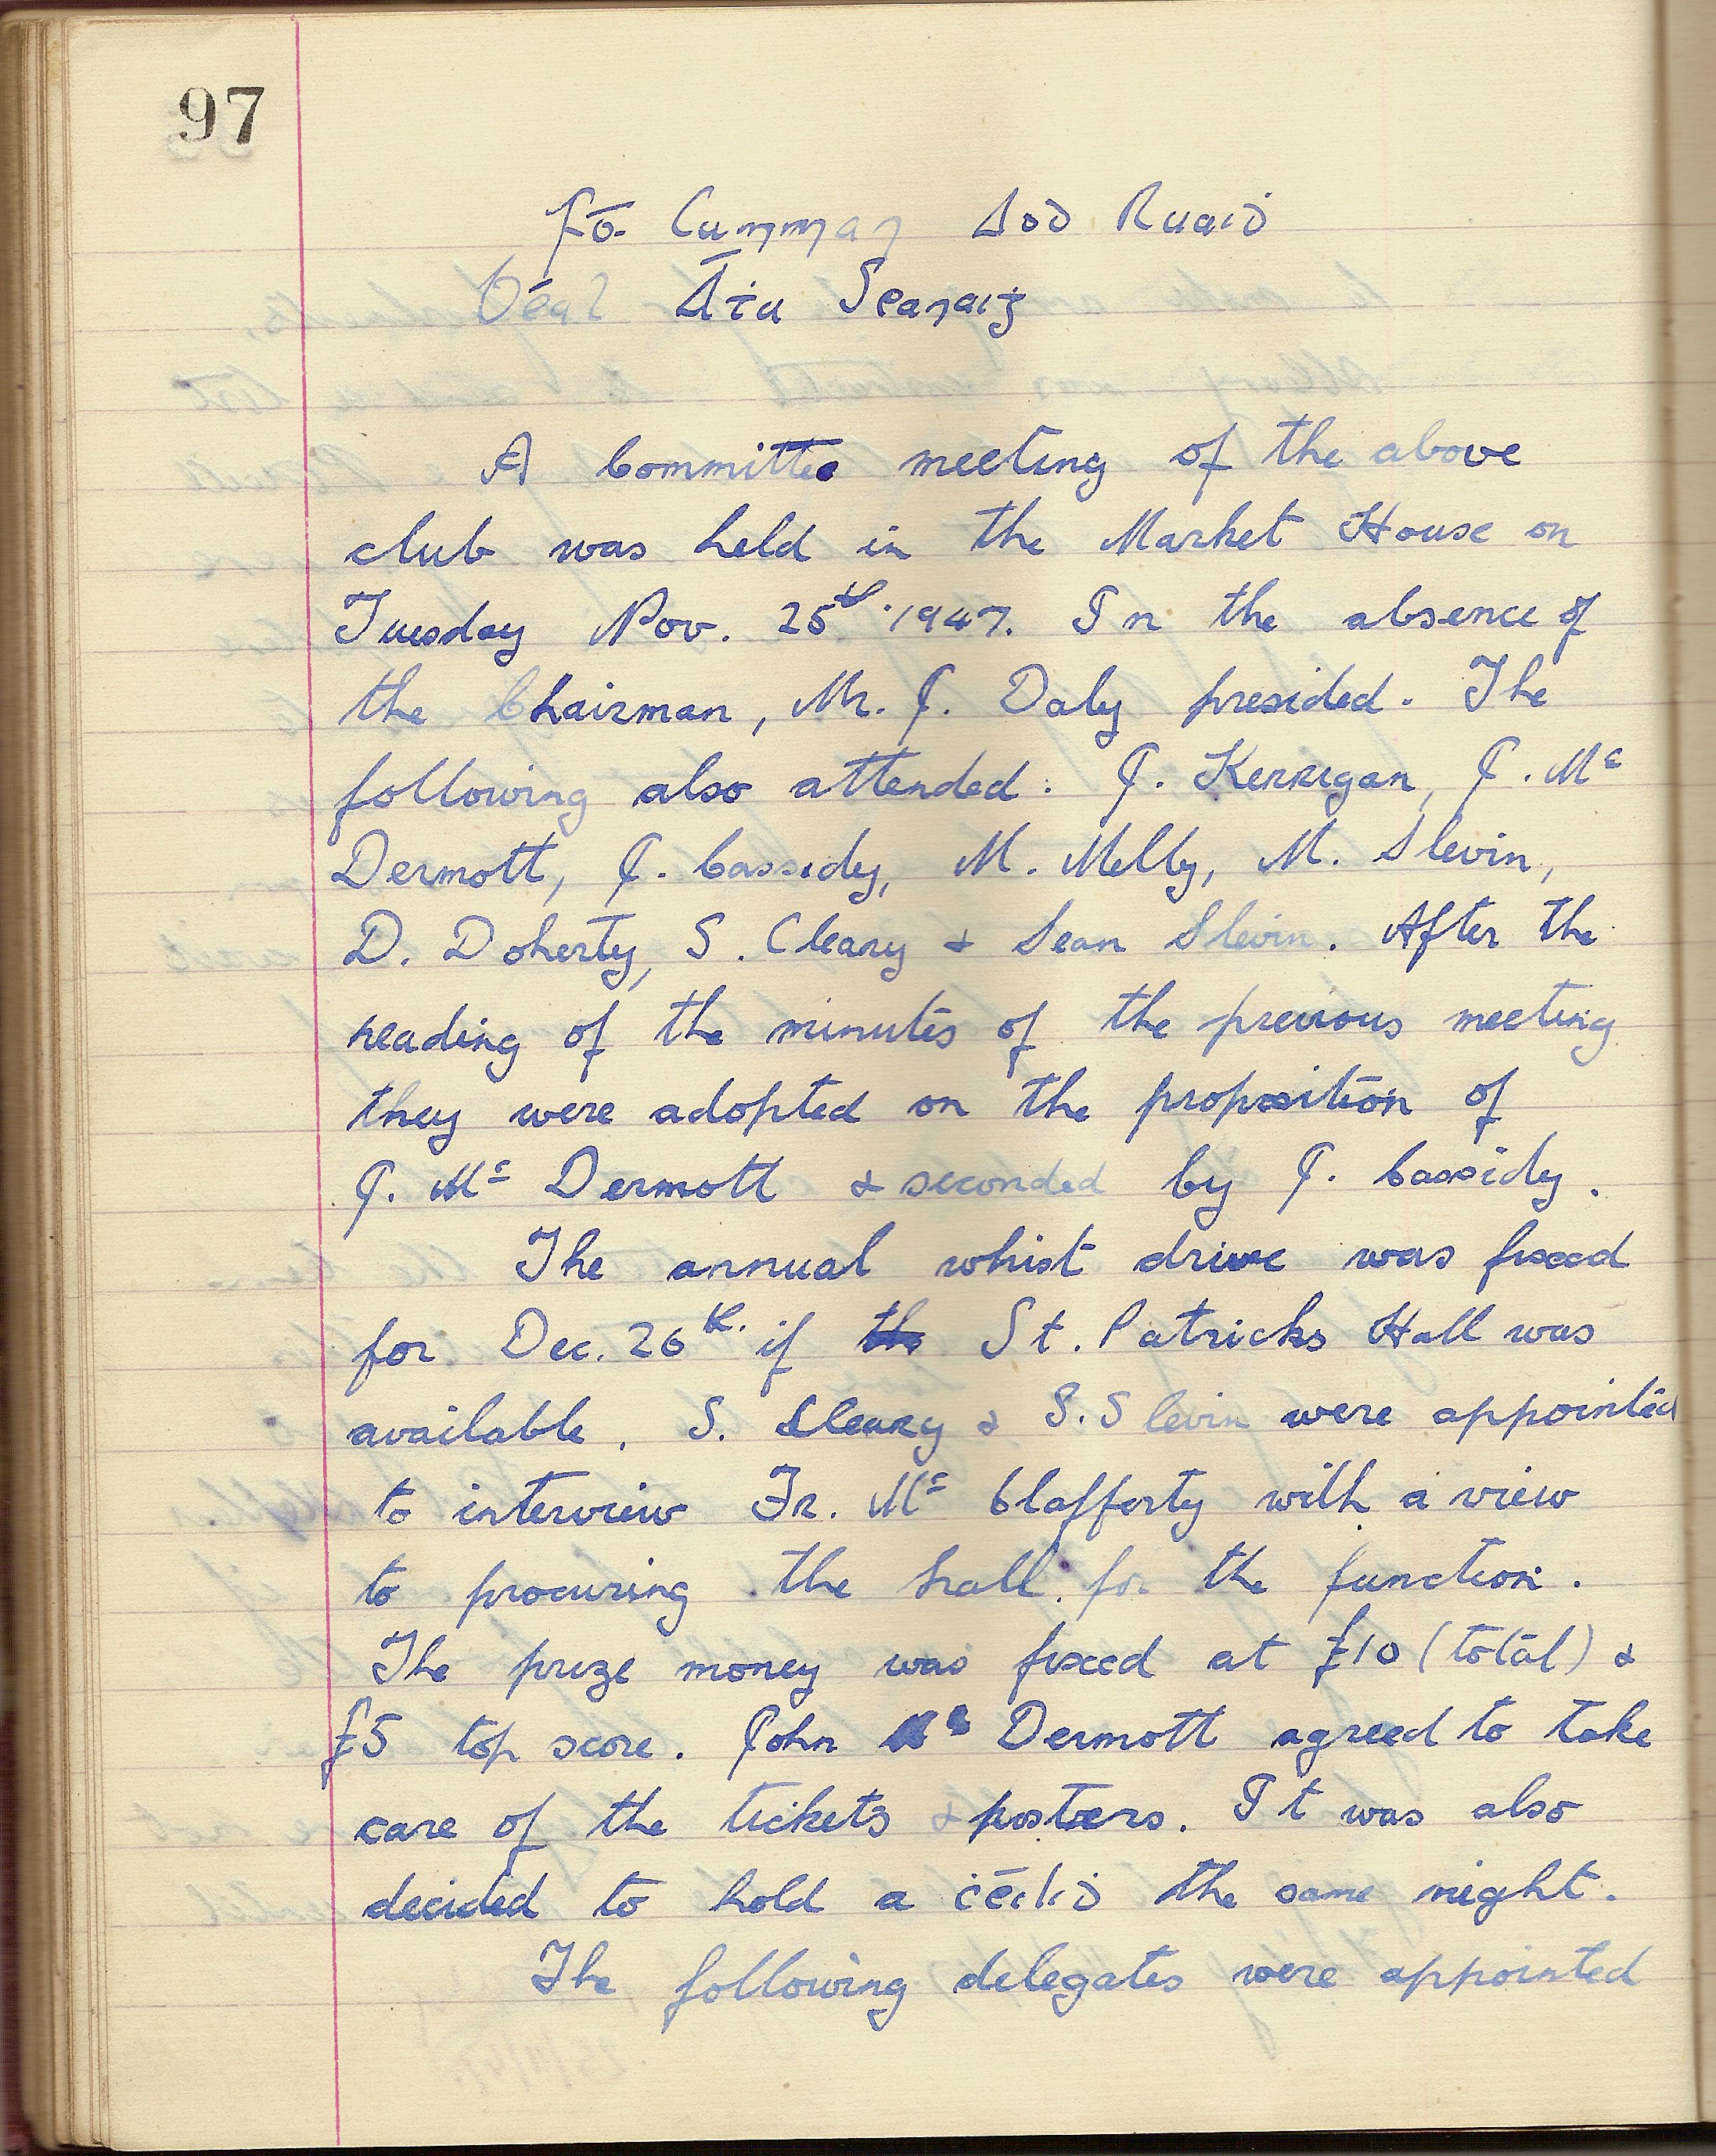 97
Fó- Cumman Aod Ruaid
Béal Áta Seanaiġ
A Committee meeting of the above
club was held in the Market House on
Tuesday Nov. 25th. 1947. In the absence of
the Chairman, Mr. J. Daly presided. The
following also attended: J. Kerrigan, J. Mc
Dermott, J. Cassidy, M. Melly, M. Slevin,
D. Doherty, S. Cleary & Sean Slevin. After the
reading of the minutes of the previous meeting
they were adopted on the proposition of
J. Mc Dermott & seconded by J. Cassidy.
The annual whist drive was fixed
for Dec. 26th. if the St. Patricks Hall was
available. S. Cleary & S. Slevin were appointed
to interview Fr. Mc Clafferty with a view
to procuring the hall for the function.
The prize money was fixed at £10 (total) &
£5 top score. John Mc Dermott agreed to take
care of the tickets & posters. It was also
decided to hold a ċéilid the same night.
The following delegates were appointed